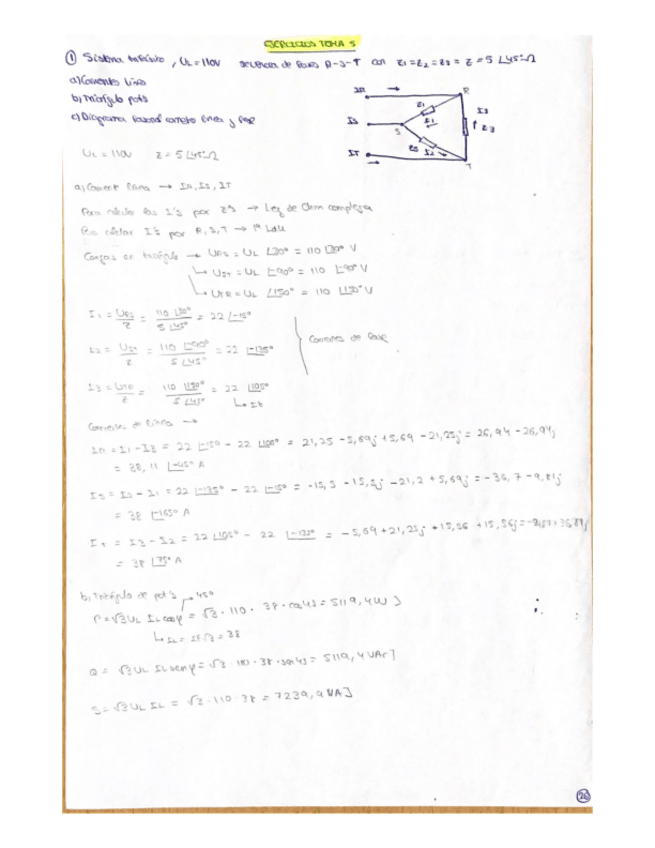 EJERCICIOS TEMA 5
① Sistema trifásico, UL=110V secuencia de fases R-S-T con Z1=Z2=Z3=Z=5∠45°Ω
a) Corrientes línea
b) Triángulo pot's
c) Diagrama fasorial corriente línea y fase
IR R
Z1 I3
IS S I1 Z3
Z2 I2
IT T
UL=110V Z=5∠45°Ω
a) Corrient línea → IR, IS, IT
Para calcular las I's por Z's → Ley de Ohm compleja
Para calcular I's por R,S,T → 1ª LdK
Cargas en triángulo → URS = UL ∠30° = 110 ∠30° V
↳ UST = UL ∠-90° = 110 ∠-90° V
↳ UTR = UL ∠150° = 110 ∠150° V
I1 = URS/Z = 110∠30°/5∠45° = 22∠-15°
I2 = UST/Z = 110∠-90°/5∠45° = 22∠-135° Corrientes de fase
I3 = UTR/Z = 110∠150°/5∠45° = 22∠105°
Corrientes de línea →
IR = I1 - I3 = 22∠-15° - 22∠105° = 21,25 - 5,69j + 5,69 - 21,25j = 26,94 - 26,94j
= 38,11 ∠-45° A
IS = I2 - I1 = 22∠-135° - 22∠-15° = -15,5 - 15,5j - 21,2 + 5,69j = -36,7 - 9,81j
= 38 ∠-165° A
IT = I3 - I2 = 22∠105° - 22∠-135° = -5,69 + 21,25j + 15,56 + 15,56j
= 38 ∠75° A
b) Triángulo de pot's 45°
P = √3 UL IL cosφ = √3 · 110 · 38 · cos45 = 5119,4W]
↳ IL = IF√3 = 38
Q = √3 UL IL senφ = √3 · 110 · 38 · sen45 = 5119,4 VAr]
S = √3 UL IL = √3 · 110 · 38 = 7239,9 VA]
26